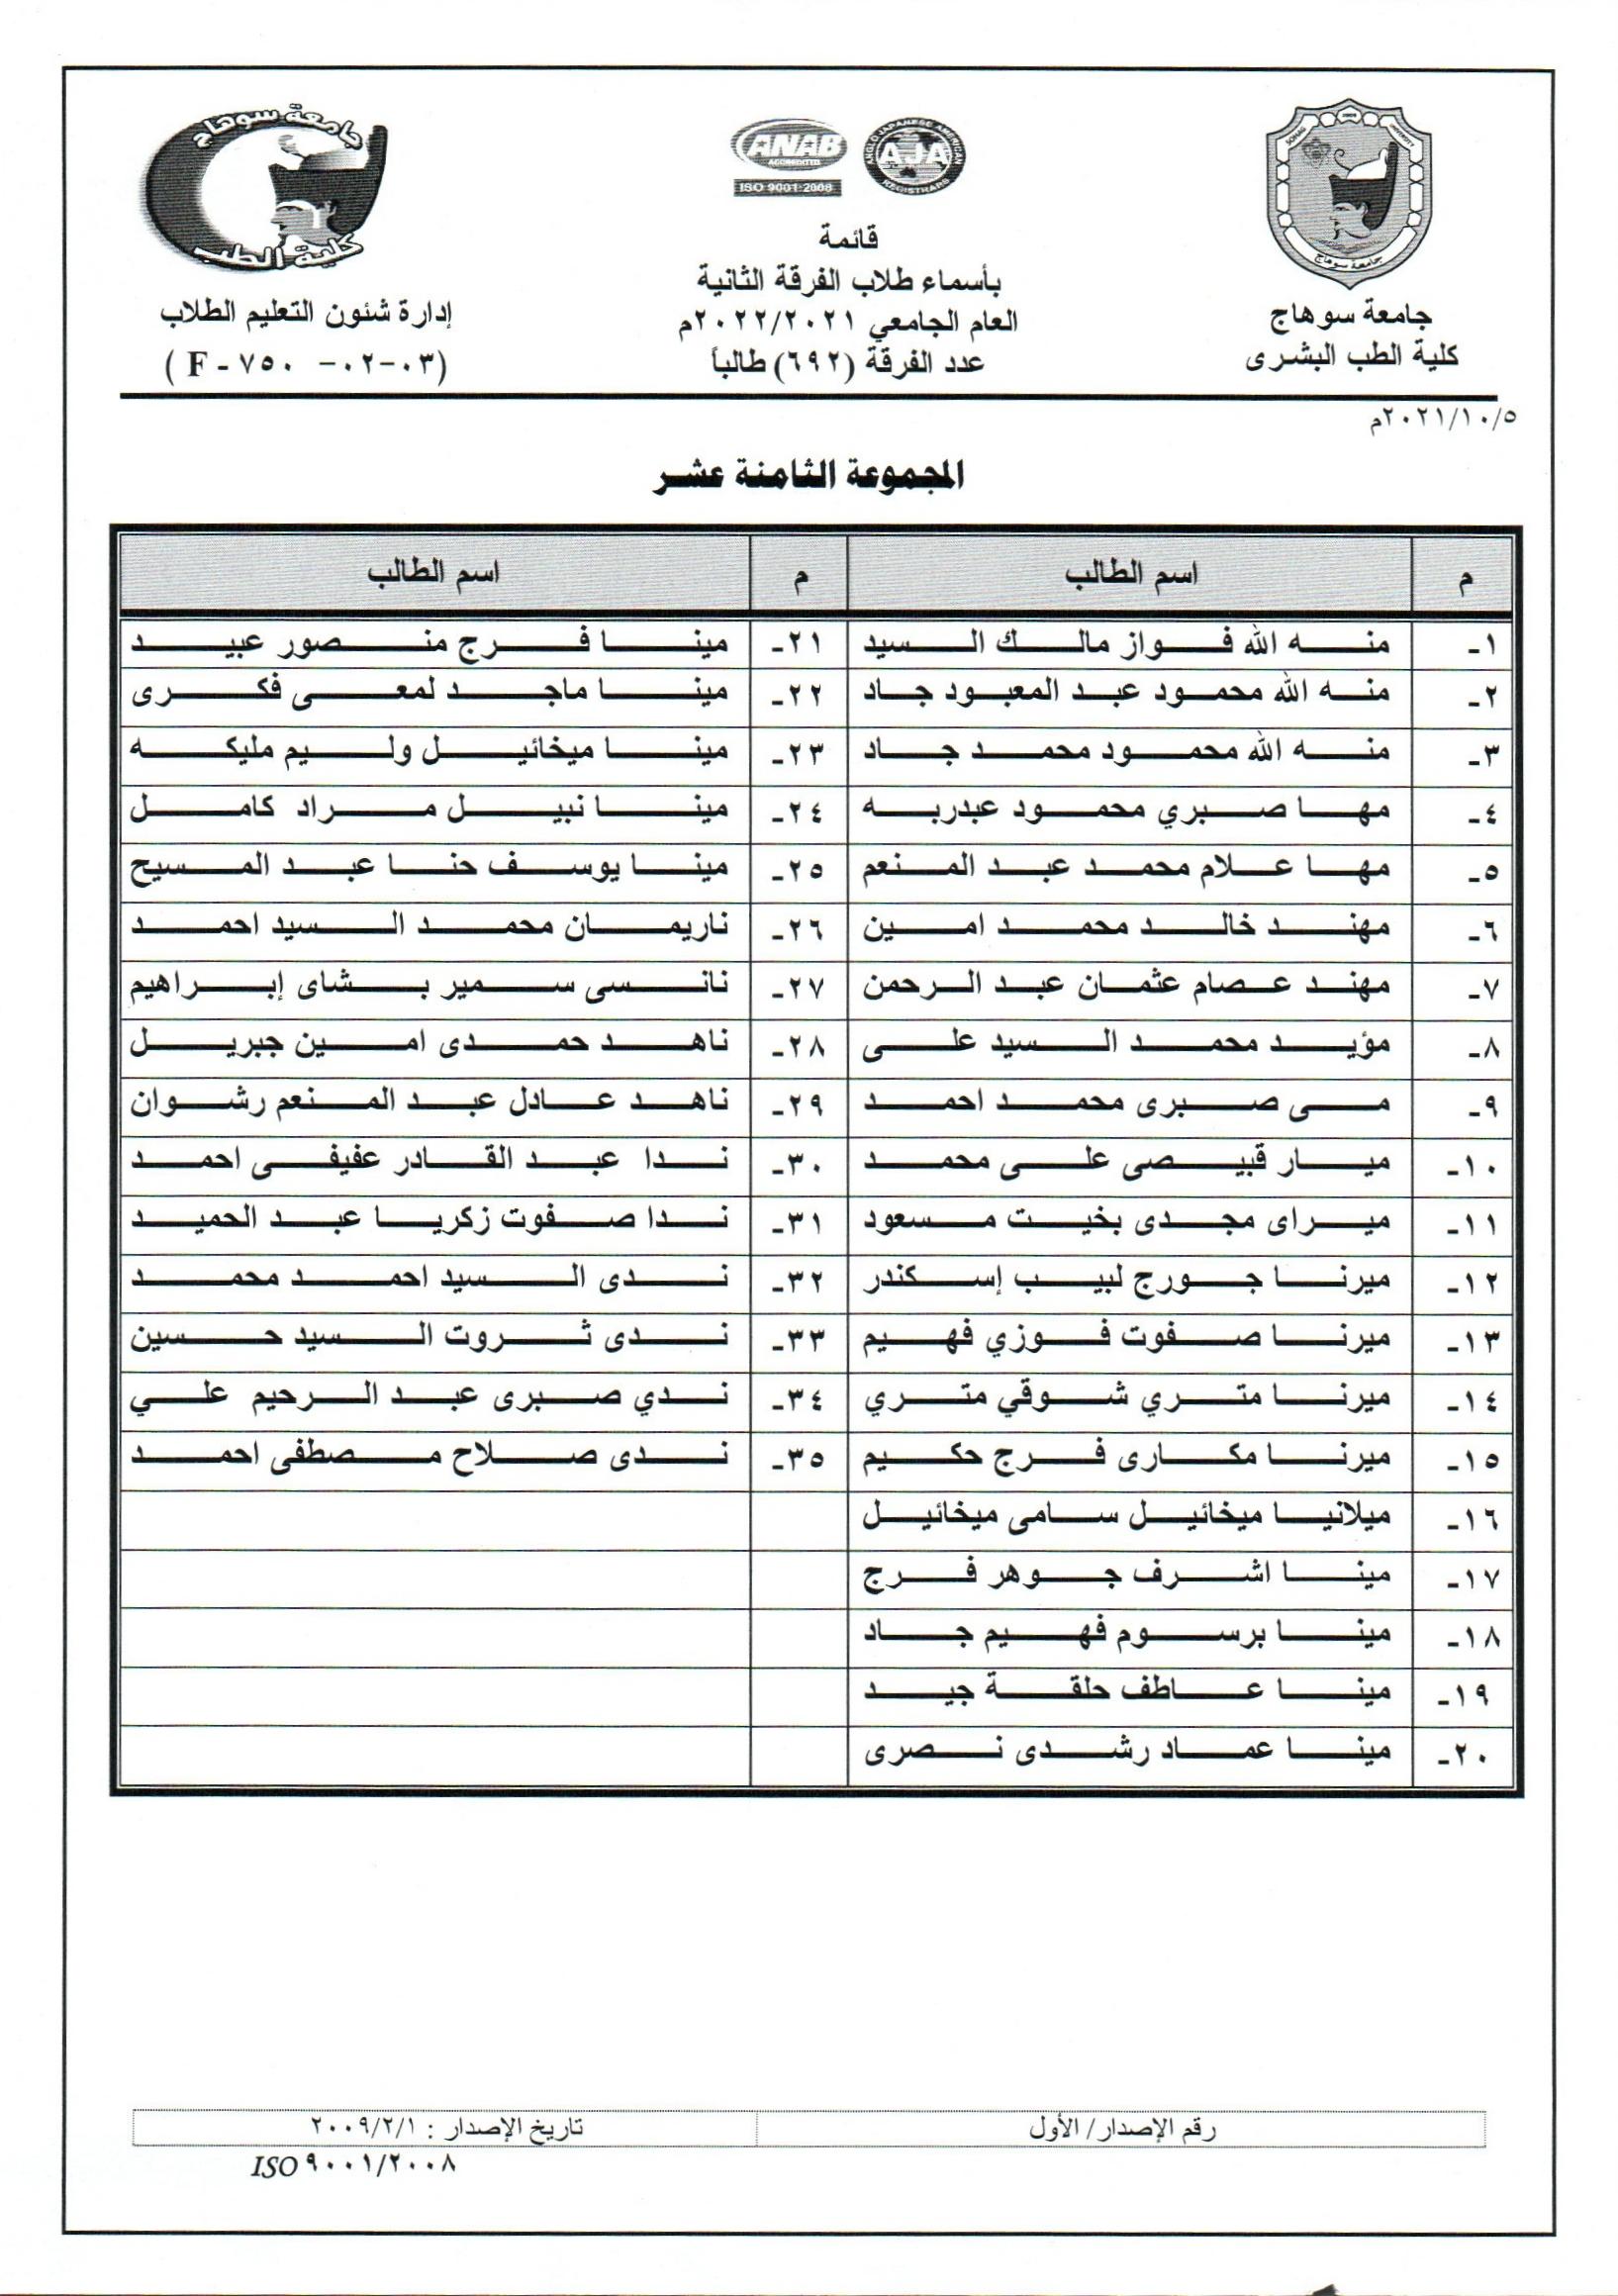 جامعة سوهاج
كلية الطب
ANAB
ACCREDITED
ISO 9001:2008
ANGLO JAPANESE AMERICAN
AJA
REGISTRARS
SOHAG UNIVERSITY
جامعة سوهاج
قائمة
بأسماء طلاب الفرقة الثانية
العام الجامعي ٢٠٢٢/٢٠٢١م
عدد الفرقة (٦٩٢) طالباً
جامعة سوهاج
كلية الطب البشرى
إدارة شئون التعليم الطلاب
(F - ٧٥٠ -٠٢-٠٣)
٢٠٢١/١٠/٥م
المجموعة الثامنة عشر
م اسم الطالب م اسم الطالب
١- منه الله فواز مالك السيد ٢١- مينا فرج منصور عبيد
٢- منه الله محمود عبد المعبود جاد ٢٢- مينا ماجد لمعى فكرى
٣- منه الله محمود محمد جاد ٢٣- مينا ميخائيل وليم مليكه
٤- مها صبري محمود عبدربه ٢٤- مينا نبيل مراد كامل
٥- مها علام محمد عبد المنعم ٢٥- مينا يوسف حنا عبد المسيح
٦- مهند خالد محمد امين ٢٦- ناريمان محمد السيد احمد
٧- مهند عصام عثمان عبد الرحمن ٢٧- نانسى سمير بشاى إبراهيم
٨- مؤيد محمد السيد على ٢٨- ناهد حمدى امين جبريل
٩- مى صبرى محمد احمد ٢٩- ناهد عادل عبد المنعم رشوان
١٠- ميار قبيصى على محمد ٣٠- ندا عبد القادر عفيفى احمد
١١- ميراى مجدى بخيت مسعود ٣١- ندا صفوت زكريا عبد الحميد
١٢- ميرنا جورج لبيب إسكندر ٣٢- ندى السيد احمد محمد
١٣- ميرنا صفوت فوزي فهيم ٣٣- ندى ثروت السيد حسين
١٤- ميرنا متري شوقي متري ٣٤- ندي صبرى عبد الرحيم علي
١٥- ميرنا مكارى فرج حكيم ٣٥- ندى صلاح مصطفى احمد
١٦- ميلانيا ميخائيل سامى ميخائيل
١٧- مينا اشرف جوهر فرج
١٨- مينا برسوم فهيم جاد
١٩- مينا عاطف حلقة جيد
٢٠- مينا عماد رشدى نصرى
رقم الإصدار/ الأول تاريخ الإصدار : ٢٠٠٩/٢/١
ISO ٩٠٠١/٢٠٠٨